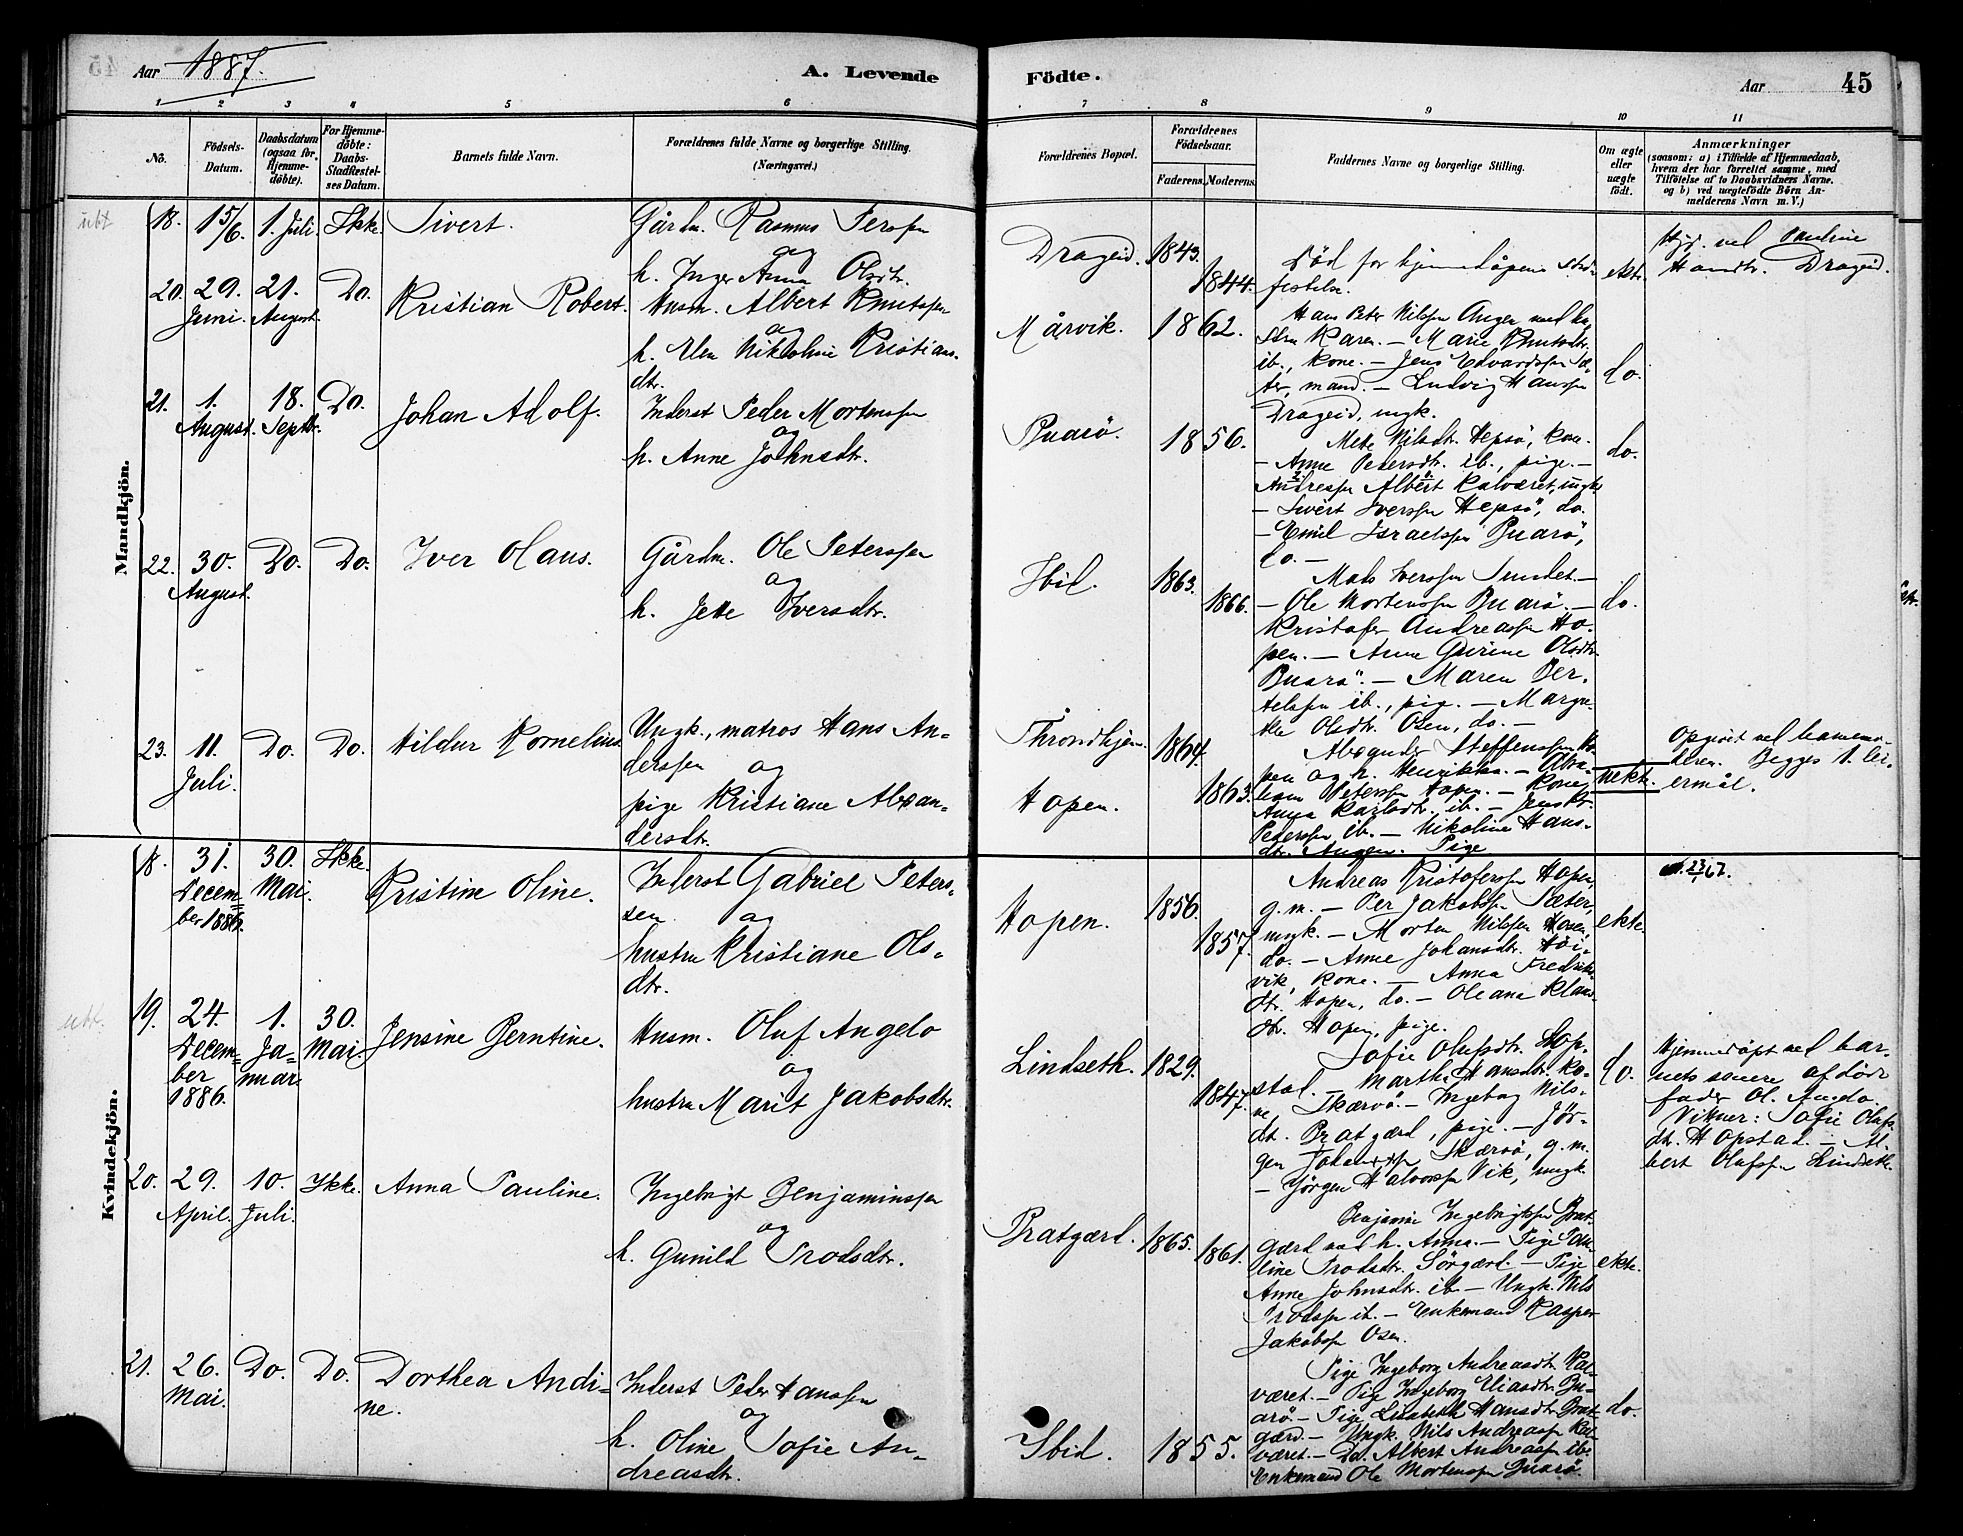 Aar 1887.
A. Levende
Födte.
Aar
45
1 2 3 4 5 6 7 8 9 10 11
No.
Födsels-Datum.
Daabsdatum (ogsaa for Hjemme-döbte).
For Hjemme-döbte: Daabs-Stadfæstel-ses Datum.
Barnets fulde Navn.
Forældrenes fulde Navne og borgerlige Stilling. (Næringsvei.)
Forældrenes Bopæl.
Forældrenes Födselsaar.
Faderens. Moderens.
Faddernes Navne og borgerlige Stilling.
Om ægte eller uægte födt.
Anmærkninger
(saasom: a) i Tilfælde af Hjemmedaab,
hvem der har forrettet samme, med
Tilföielse af to Daabsvidners Navne.
og b) ved uægtefödte Börn An-
melderens Navn m. V.)
Mandkjön.
18. 15/6. 1. Juli. Ikke. Sivert.
Gårdm. Rasmus Perssen
og
h. Inger Anna Olsdtr.
Drageid. 1843. 1844.
Död for hjemmedåpens stad-
festelse.
ekte.
Hjd. ved Pauline
Drageid.
20. 29. Juni. 21. August. Do. Kristian Robert.
Husm. Albert Knutssen
og
h. Elen Nikoline Kristians-
dtr.
Mårvik. 1862.
Hans Peter Nilssen Angen med hu-
stru Karen. — Marie Knutsdtr.
ib., kone. — Jens Edvardssen Sæ-
ter, mand. — Ludvig Hanssen
Drageid, ungk.
do.
21. 1. August. 18. Septbr. Do. Johan Adolf.
Inderst Peder Mortenssen
og
h. Anne Johnsdtr.
Buarö. 1856.
Mette Nilsdtr. Hepsö, kone.
— Anne Petersdtr. ib., pige. —
Andreassen Albert Kalværet, ungk.
— Sivert Iverssen Hepsö, do.
— Emil Israelssen Buarö,
do. —
do.
22. 30. August. Do. Do. Iver Olaus.
Gårdm. Ole Peterssen
og
h. Jette Iversdtr.
Ibid. 1863. 1866.
Mats Iverssen Sundet. —
— Ole Mortenssen Buarö. —
Kristofer Andreassen Ho-
pen. — Anne Gurine Olsdtr.
Buarö. — Maren Ber-
telssen ib., pig. — Margre-
the Olsdtr. Osen, do. —
do.
23. 11. Juli. Do. Do. Hildur Kornelius.
Ungk., matros Hans An-
derssen og
pige Kristiane Alexan-
dersdtr.
Throndhjem. 1864.
Hopen. 1863.
Alexander Steffenssen Ho-
pen og h. Henrikka. — Abra-
ham Peterssen Hopen. — Kone
Anna Karlsdtr. ib. — Jens
Peterssen ib. — Nikoline Hans-
dtr. Angen. Pige
uekte.
Opgivet ved barnemo-
deren. Begges 1. lei-
ermål.
Kvindekjön.
18. 31. December 1886. 30. Mai. Ikke. Kristine Oline.
Inderst Gabriel Peters-
sen og
hustru Kristiane Ols-
dtr.
Hopen. 1856. 1857.
Andreas Kristoferssen Hopen,
g.m. — Per Jakobssen Sæter,
ungk. — Morten Nilssen Hopen,
do. — Anne Johansdtr. Höi-
vik, kone. — Anna Fredriks-
dtr. Hopen, do. — Oleana Klaus-
dtr. Hopen, pige.
ekte.
19. 24. December 1886. 1. Januar. 30. Mai. Jensine Berntine.
Husm. Oluf Angelo
og
hustru Marit Jakobsdtr.
Lindseth. 1829. 1847.
Sofie Olufsdtr. Hop-
stad. — Martha Hansdtr. Ko-
ne, Skærvö. — Ingeborg Nils-
dt. Bratgærd, pige. — Jör-
gen Skærvö, g.m.
— Jörgen Halvorssen Vik, ungk.
do.
Hjemmedöpt ved bar-
nets senere afdöde
fader Ol. Angelo.
Vidner: Sofie Olufs-
dt. Hopstad. — Al-
bert Olufssen Lindseth.
20. 29. April. 10. Juli. Ikke. Anna Pauline.
Ingebrigt Benjaminssen
og
h. Gunild Trodsdtr.
Bratgærd. 1865. 1861.
Benjamin Ingebrigtssen Brat-
gærd med h. Anna. — Pige Pau-
line Trodsdtr. Sörgærd. — Pige
Anne Johnsdtr. ib. — Ungk. Nils
Trodssen ib. — Enkemand Kasper
Jakobssen Osen.
ekte.
21. 26. Mai. Do. Do. Dorthea Andi-
ne.
Inderst Peder Hanssen
og
h. Oline Sofie An-
dreasdtr.
Ibid. 1855.
Pige Ingeborg Andreasdtr. Kal-
været. — Pige Ingeborg Eliasdtr. Bu-
arö. — Pige Lisabeth Hansdtr. Brat-
gærd. — Ungk. Nils Andreassen Kal-
været. — Do. Albert Andreassen ib.
Enkemand Ole Mortenssen Buarö.
do.